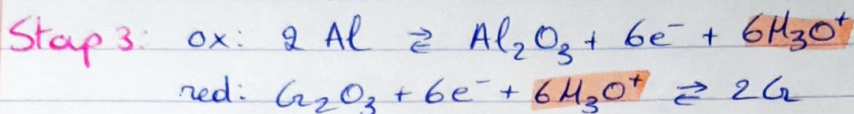 Stap 3: ox: 2 Al ⇄ Al₂O₃ + 6e⁻ + 6H₃O⁺
red: Cr₂O₃ + 6e⁻ + 6H₃O⁺ ⇄ 2Cr